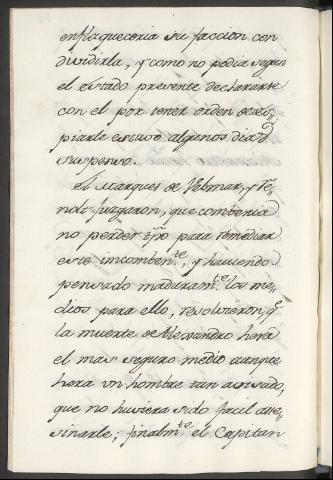 enflaqueceria su faccion con
dividirla, y como no podia segun
el estado presente declararse
con el por tener orden de es-
piarle estuvo algunos dias
suspenso.
El Marques de Velmar, y Te-
nolt juzgaron, que combenia
no perder tpõ para remediar
este incombente, y haviendo
pensado maduramte los me-
dios para ello, resolvieron, qe
la muerte de Alexandro hera
el mas seguro medio aunque
hera un hombre tan avisado,
que no huviera sido facil asse-
sinarle; finalmte el Capitan